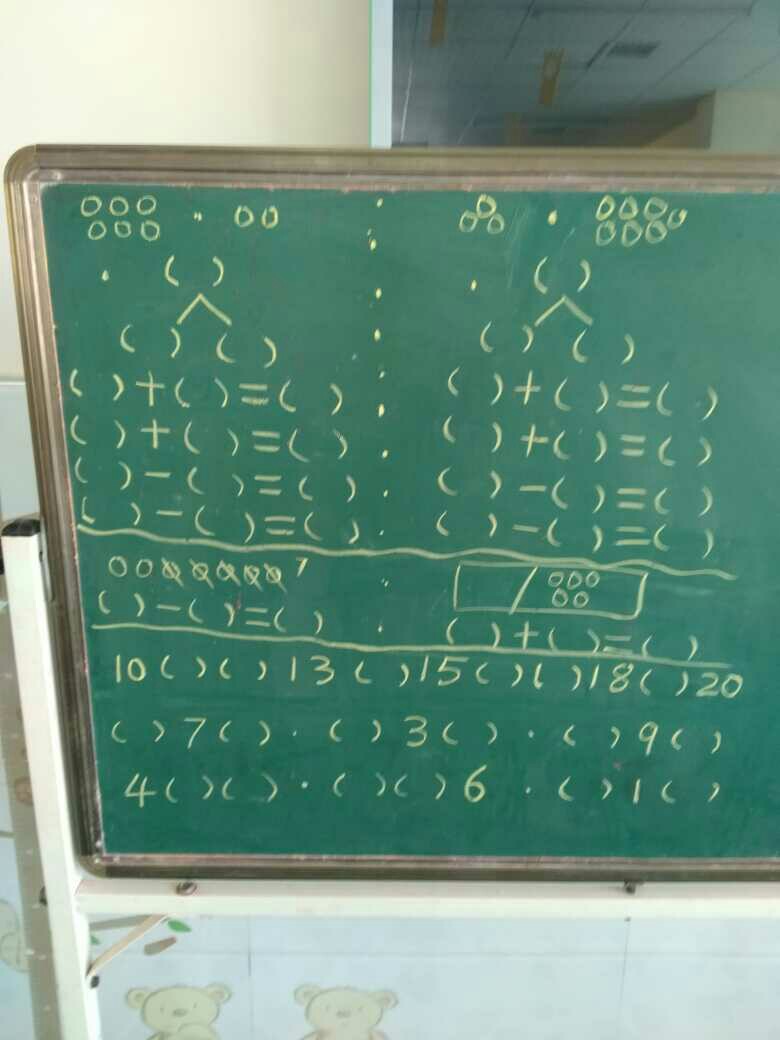 ( ) ( )
( ) ( ) ( ) ( )
( )+( )=( ) ( )+( )=( )
( )+( )=( ) ( )+( )=( )
( )-( )=( ) ( )-( )=( )
( )-( )=( ) ( )-( )=( )
( )-( )=( ) ( )+( )=( )
10( )( )13( )15( )( )18( )20
( )7( ) . ( )3( ) . ( )9( )
4( )( ) . ( )( )6 . ( )1( )